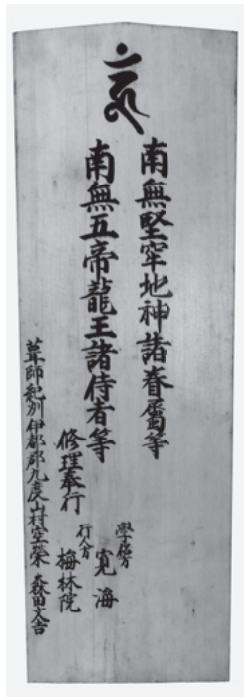 南無堅牢地神諸眷屬等
南無五帝龍王諸侍者等
修理奉行
學侶方
寛海
行人方
梅林院
葺師紀州伊都郡九度山村空榮 森田文吉